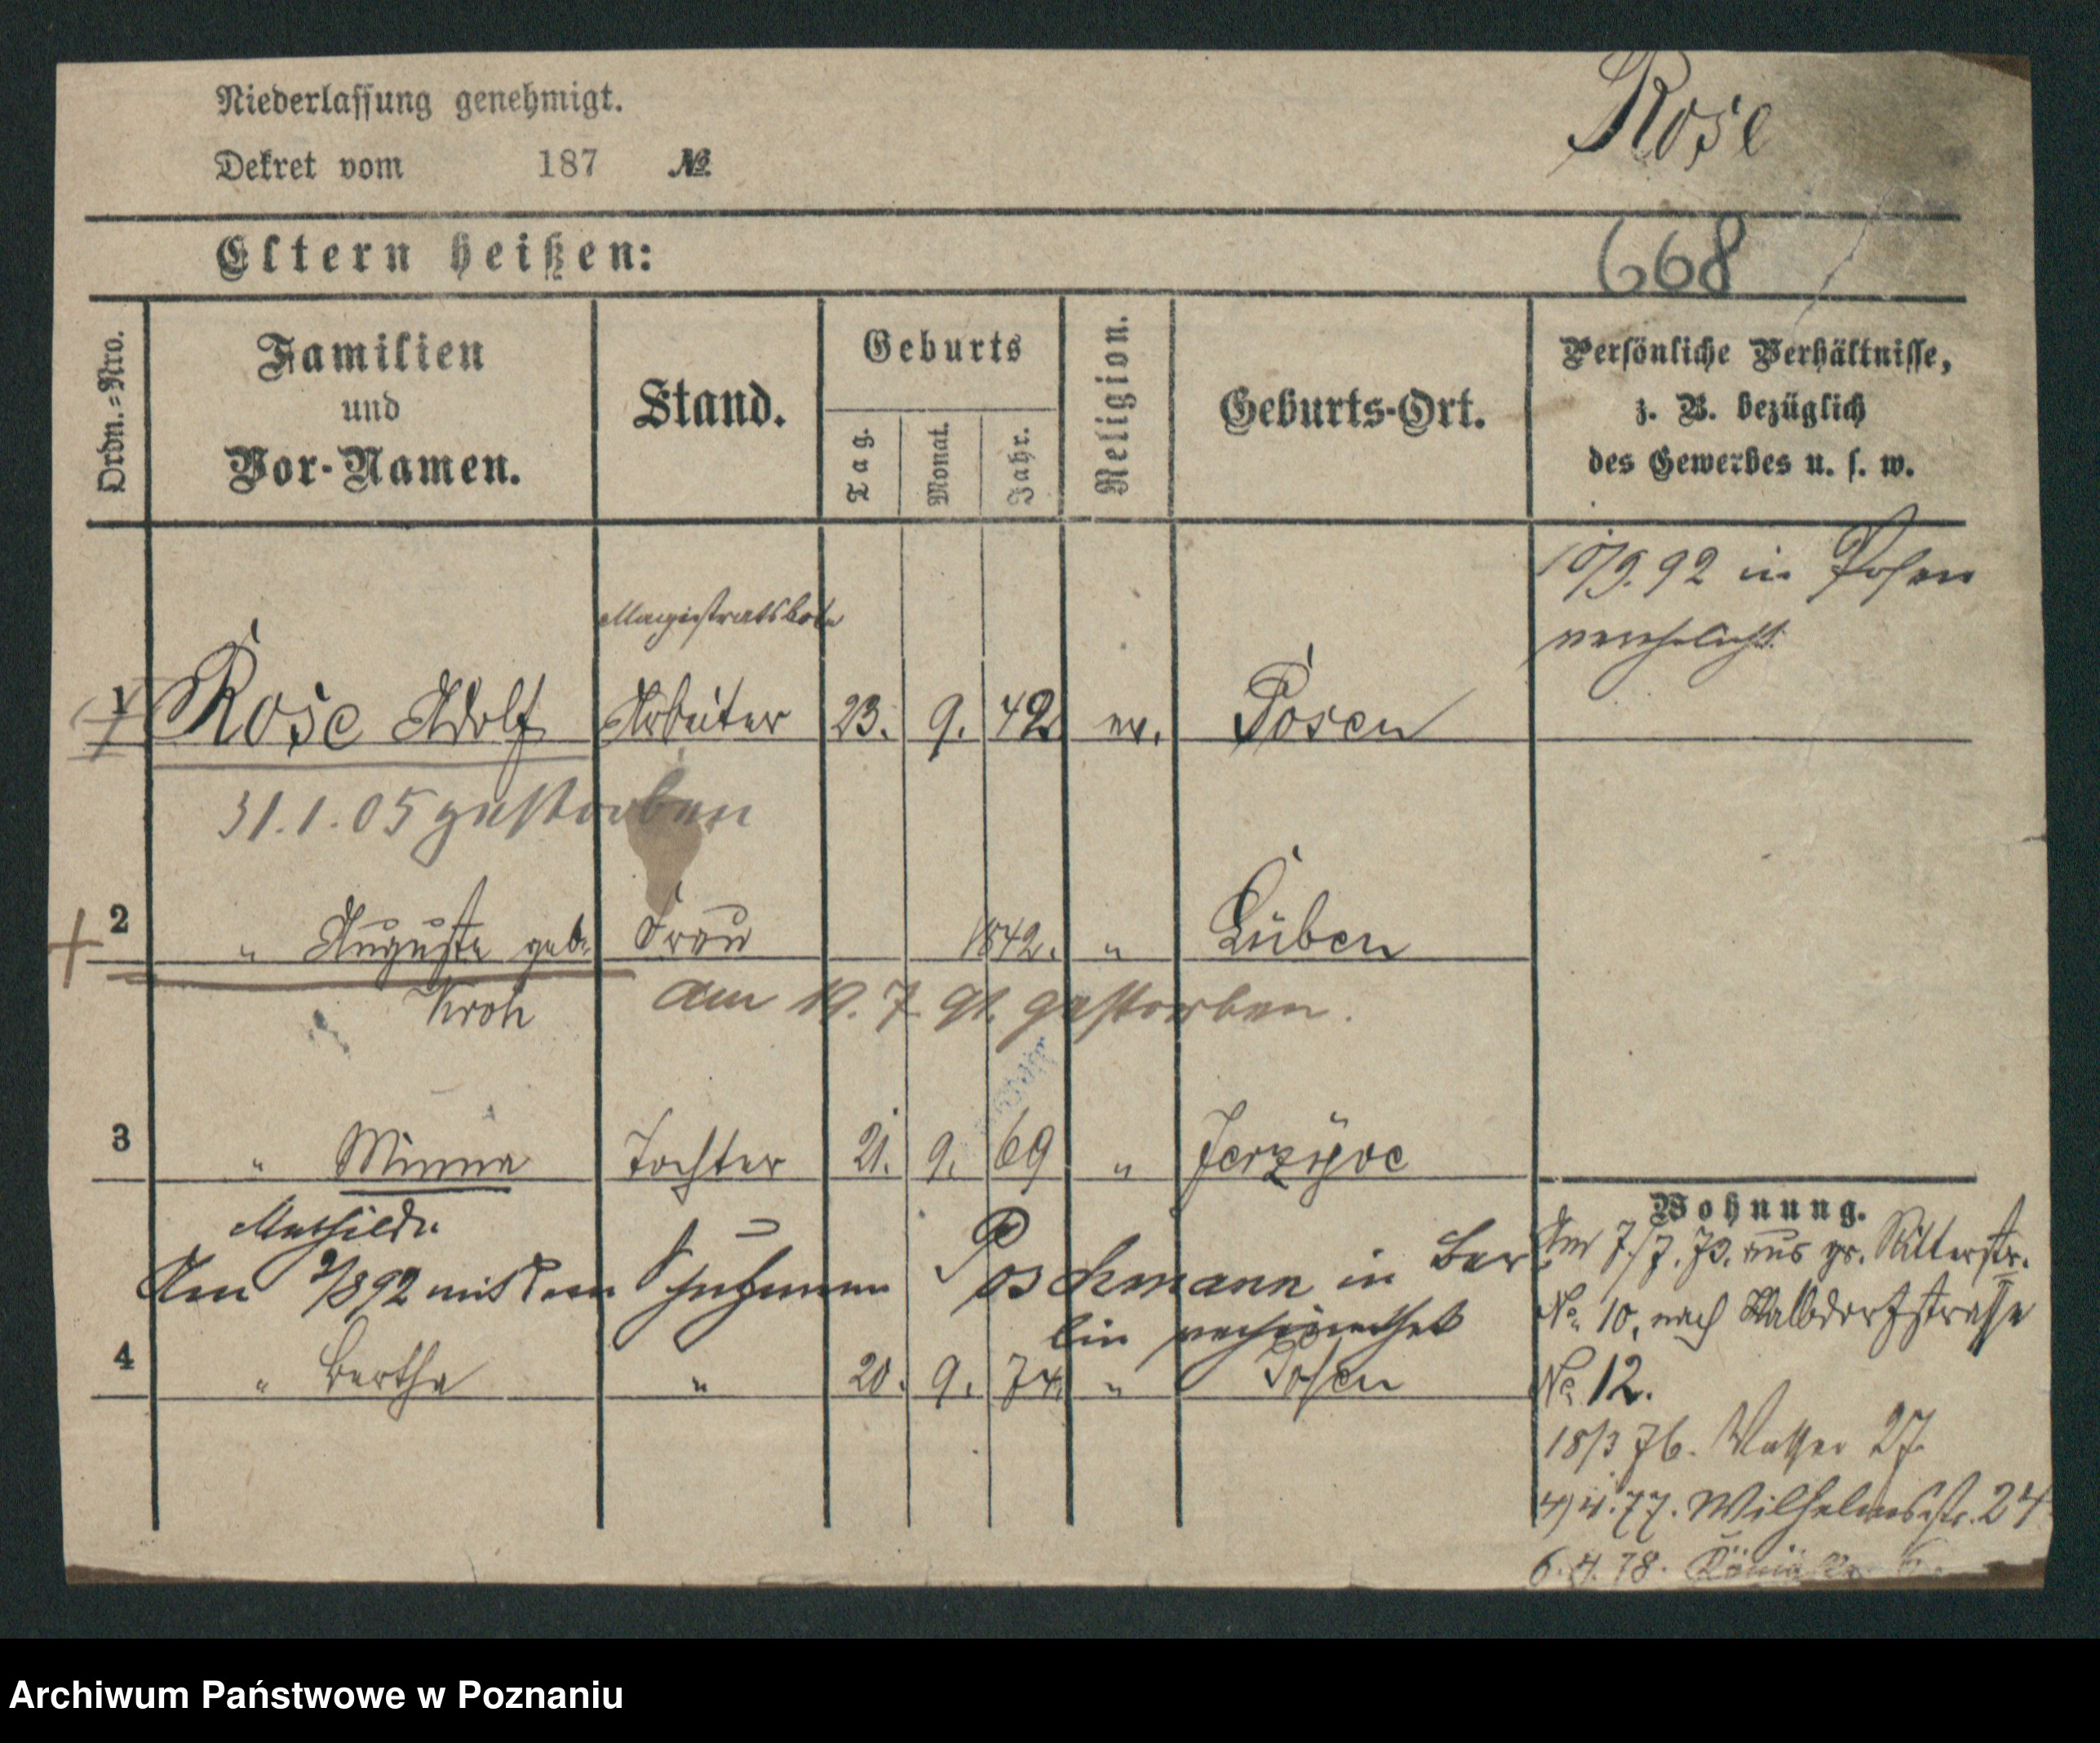 Rose
Niederlassung genehmigt.
Dekret vom 187 №
Eltern heißen:
668
Ordn.-Nro.
Familien
und
Vor-Namen.
Stand.
Geburts
Tag.
Monat.
Jahr.
Religion.
Geburts-Ort.
Persönliche Verhältnisse,
z. B. bezüglich
des Gewerbes u. s. w.
10/9. 92 in Posen
verehelicht
Magistratsbote
1 Rose Adolf Arbeiter 23. 9. 42 ev. Posen
31.1.05 gestorben
2 " Auguste geb. Frau 1842. " Lüben
Kroh am 19. 7. 91. gestorben.
3 " Minna Tochter 21. 9. 69 " Jerzyce
Mathilde
Am 2/8 92 mit dem Schutzmann Poschmann in Ber
lin verheirathet
4 " Bertha " 20. 9. 74. " Posen
Wohnung.
Am 7/7. 73. aus gr. Ritterstr.
No. 10, nach Halbdorfstrasse
No. 12.
18/3 76. 27.
4) 4. 77. Wilhelmsstr. 24
6. 4. 78.
Archiwum Państwowe w Poznaniu